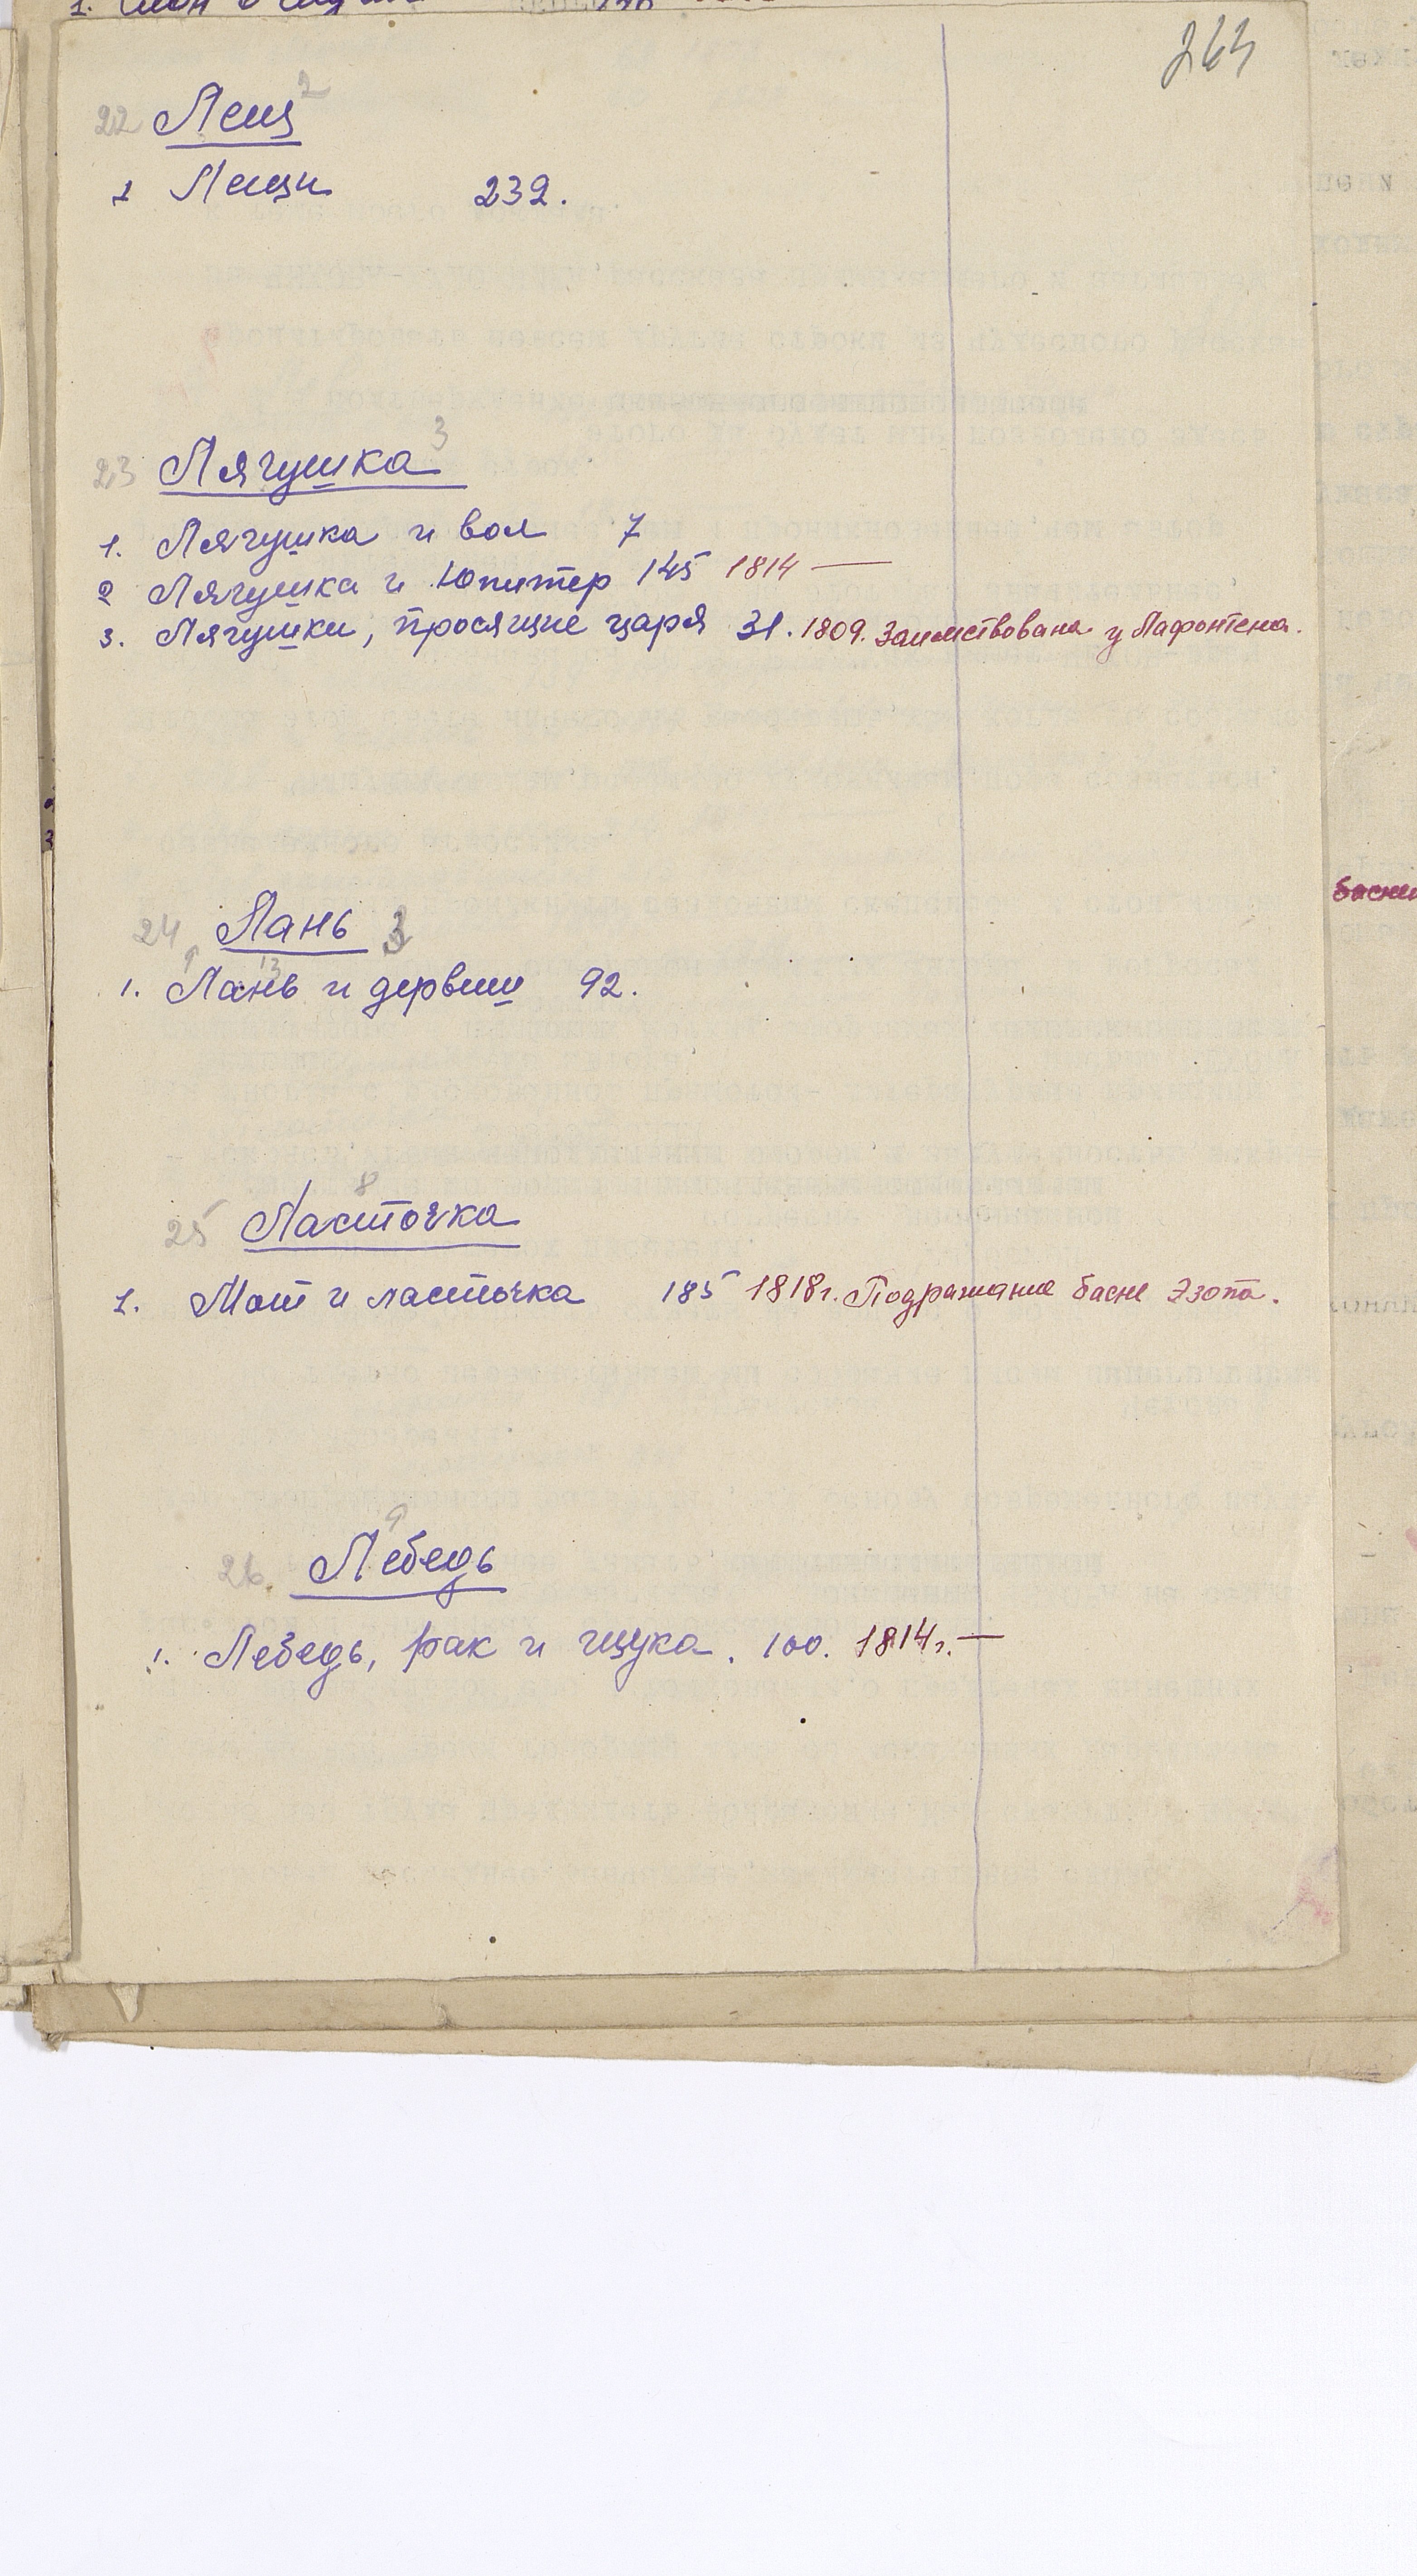 263
22 Лещ 2
1 Лещи 232.
23 Лягушка 3
1. Лягушка и вол 7
2 Лягушка и Юпитер 145 1814 —
3. Лягушки, просящие царя 31. 1809. Заимствована у Лафонтена.
24 Лань 3
1. Лань и дервиш 92.
8
25 Ласточка
1. Мот и ласточка 185 1818г. Подражание басне Эзопа.
26. Лебедь
1. Лебедь, рак и щука. 100. 1814г. —